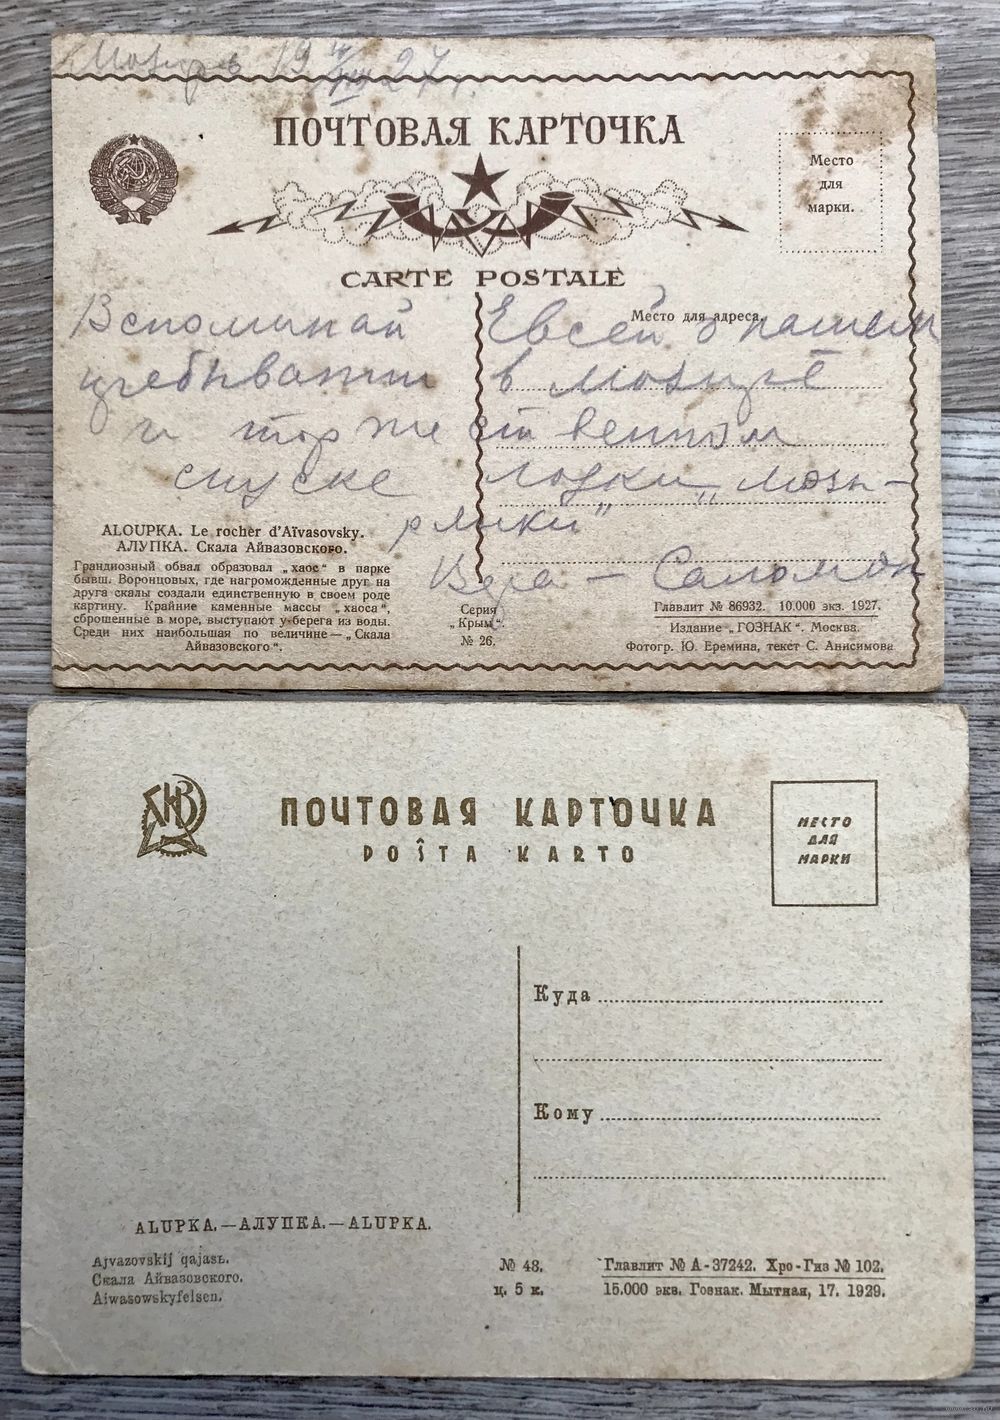 Мозырь 19 27 г.
ПОЧТОВАЯ КАРТОЧКА
Место
для
марки.
CARTE POSTALE
Место для адреса.
Вспоминай Евсей о нашем
пребывании в Мозыре
и торжественном
спуске лодки „Мозы-
рянки"
Вера — Саломон
ALOUPKA. Le rocher d'Aïvasovsky.
АЛУПКА. Скала Айвазовского.
Грандиозный обвал образовал „хаос" в парке
бывш. Воронцовых, где нагроможденные друг на
друга скалы создали единственную в своем роде
картину. Крайние каменные массы „хаоса",
сброшенные в море, выступают у берега из воды.
Среди них наибольшая по величине — „Скала
Айвазовского".
Серия
„Крым".
№ 26.
Главлит № 86932. 10.000 экз. 1927.
Издание „ГОЗНАК". Москва.
Фотогр. Ю. Еремина, текст С. Анисимова
ПОЧТОВАЯ КАРТОЧКА
POŜTA KARTO
МЕСТО
ДЛЯ
МАРКИ
Куда
Кому
ALUPKA.—АЛУПКА.—ALUPKA.
Ajvazovskij qajasь.
Скала Айвазовского.
Aiwasowskyfelsen.
№ 48.
ц. 5 к.
Главлит № А-37242. Хро-Гиз № 102.
15.000 экз. Гознак. Мытная, 17. 1929.